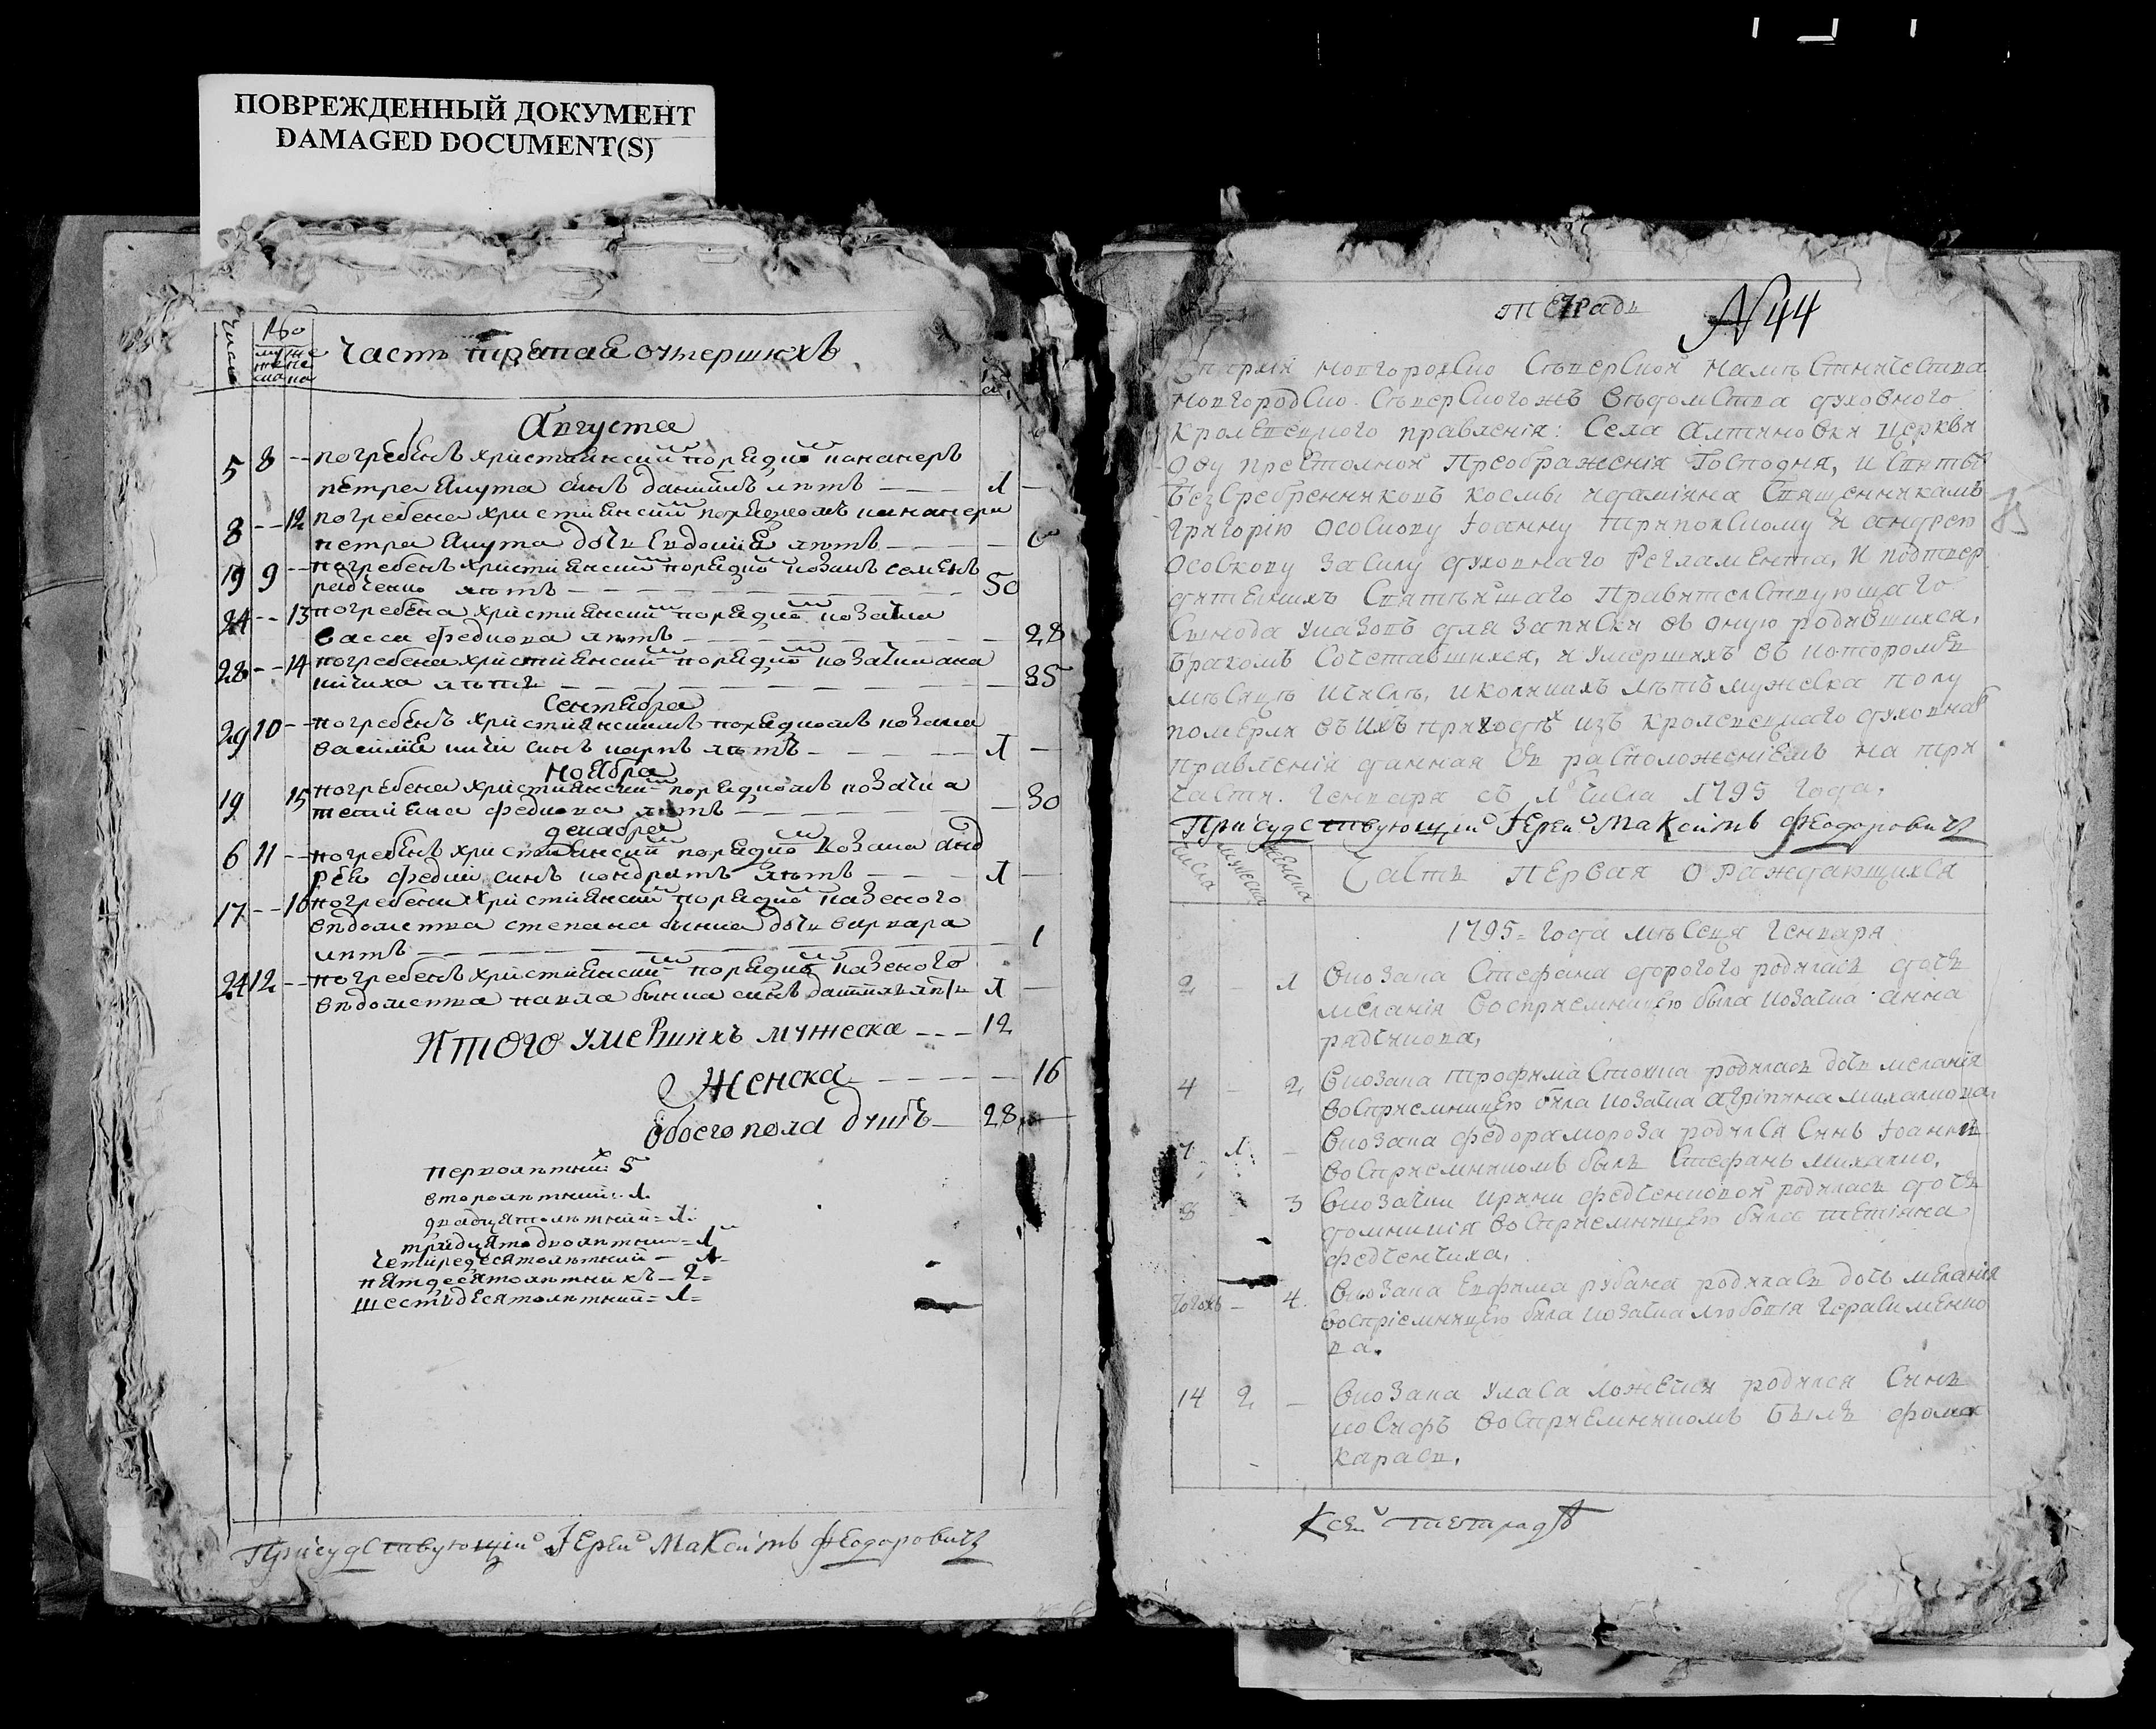 ПОВРЕЖДЕННЫЙ ДОКУМЕНТ
DAMAGED DOCUMENT(S)
число
Часть третая о умершихъ
Августа
5 8 -- погребенъ християнским порядко канонеръ
петра Якута синъ данѣилъ лѣтъ 1
8 -- 12 погребена християнским порядкомъ канонера
петра Якута дочь Евдокия лѣтъ
19 9 -- погребенъ християнским порядко козакъ семенъ
радченко лѣтъ 50
24 -- 13 погребена християнским порядко козачка
васса федкова лѣтъ 28
28 -- 14 погребена християнским порядко козачка
лѣтъ 35
Сентебра
29 10 -- погребенъ християнскимъ порядкомъ козака
василия синъ карпъ лѣтъ 1
ноябра
19 15 погребена християнским порядкомъ козачка
федкова лѣтъ 30
декабра
6 11 -- погребенъ християнским порядко козака анд
рея синъ кондратъ лѣтъ 1
17 -- 16 погребена християнским порядко казеного
вѣдомства степана дочь варвара
лѣтъ 1
24 12 -- погребенъ християнским порядко казеного
вѣдомства павла синъ лѣтъ 1
Итого умершихъ мужеска 12
Женска 16
Обоего пола душъ 28
перволѣтних 5
второлѣтний 1
двадцятолѣтний = 1
тридцятодволѣтний = 1
четиредесятолѣтний - 1
пятдесятолѣтнихъ - 2 =
шестидесятолѣтний = 1 =
Присудствующій Іерей Максимъ Феодоровичъ
тетрадь N 44
Епархіи новгородско Сѣверской намѣстничества
новгородско Сѣверскогожъ вѣдомства духовного
кролевецкого правленія: Села Алтиновки церкви
преСтолной Преображенія Господня, и Святы
безсребренниковъ космы и даміяна Священникамъ
Григорію Осовскому Іоанну и андрею
Осовскому въ силу духовнаго Регламента, и подтвер
дителнихъ Святѣйшаго Правителствующаго
Сѵнода указовъ для записки въ оную родившихся,
бракомъ Сочетавшихся, и умершихъ въ котором
мѣсяцѣ и числѣ, и колкихъ лѣтъ мужеска полу
померли въ ихъ приходѣ изъ кролевецкаго духовна
правленія данная съ расположеніемъ на три
части. Генваря съ 1 числа 1795 года,
Присудствующій Іерей Максимъ Феодоровичъ
числа мужеска женска Часть первая о раждающихся
1795 = года мѣсеця Генваря
2 - 1 Вкозака Стефана дорогого родилась дочь
меланія воспріемницею была козачка анна
радчикова,
4 - 2 Вкозака трофима родилась дочь меланія
воспріемницею била козачка агрипина михалкова,
7 1 - Вкозака федора мороза родился Синъ Іоаннъ
воспріемникомъ былъ Стефанъ михалко,
8 - 3 Вкозачки ирини федченковой родилась дочь
домникія воспріемницею была тетіана
федченчиха,
- 4 Вкозака Евфима рубана родилась дочь меланія
воспріемницею била козачка любовія Герасименко
ва.
14 2 - Вкозака уласа родился Синъ
иосифъ воспріемникомъ былъ фома
карась,
Ксей тетрадѣ